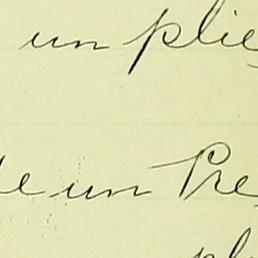 un plie
de un Pre
pl